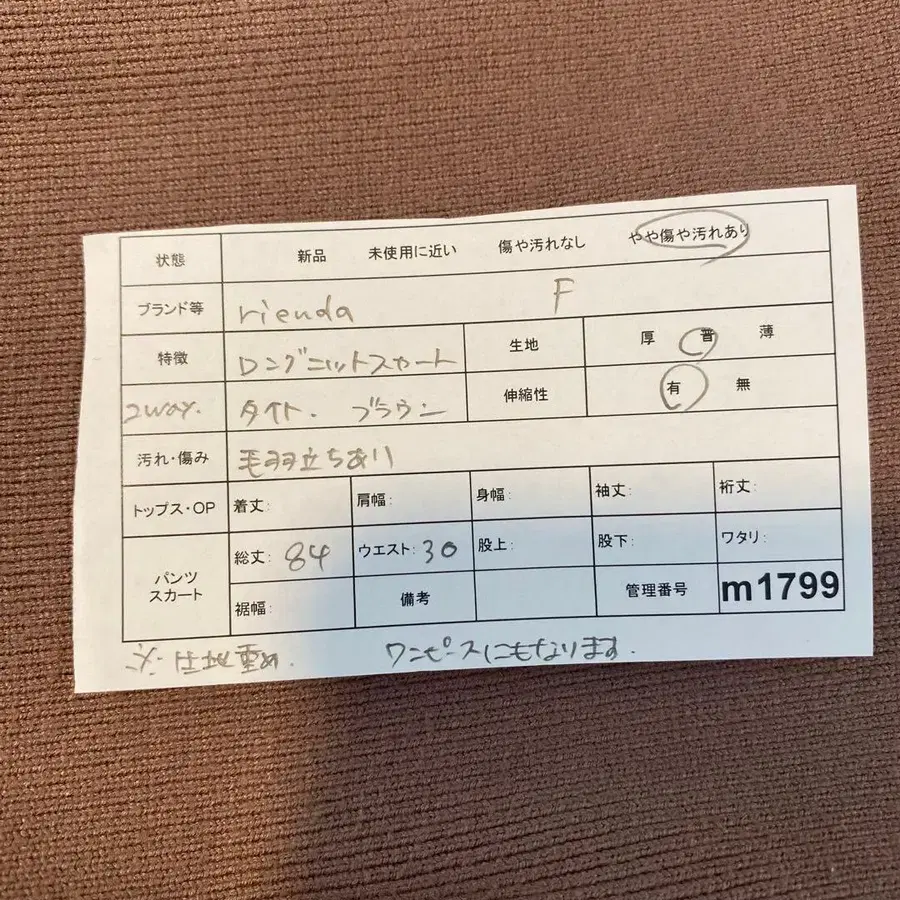 状態 新品 未使用に近い 傷や汚れなし やや傷や汚れあり
ブランド等 rienda F
特徴 ロングニットスカート 生地 厚 普 薄
2way. タイト. ブラウン 伸縮性 有 無
汚れ・傷み 毛羽立ちあり
トップス・OP 着丈: 肩幅: 身幅: 袖丈: 裄丈:
パンツ スカート 総丈: 84 ウエスト: 30 股上: 股下: ワタリ:
裾幅: 備考 管理番号 m1799
重め. ワンピースにもなります.